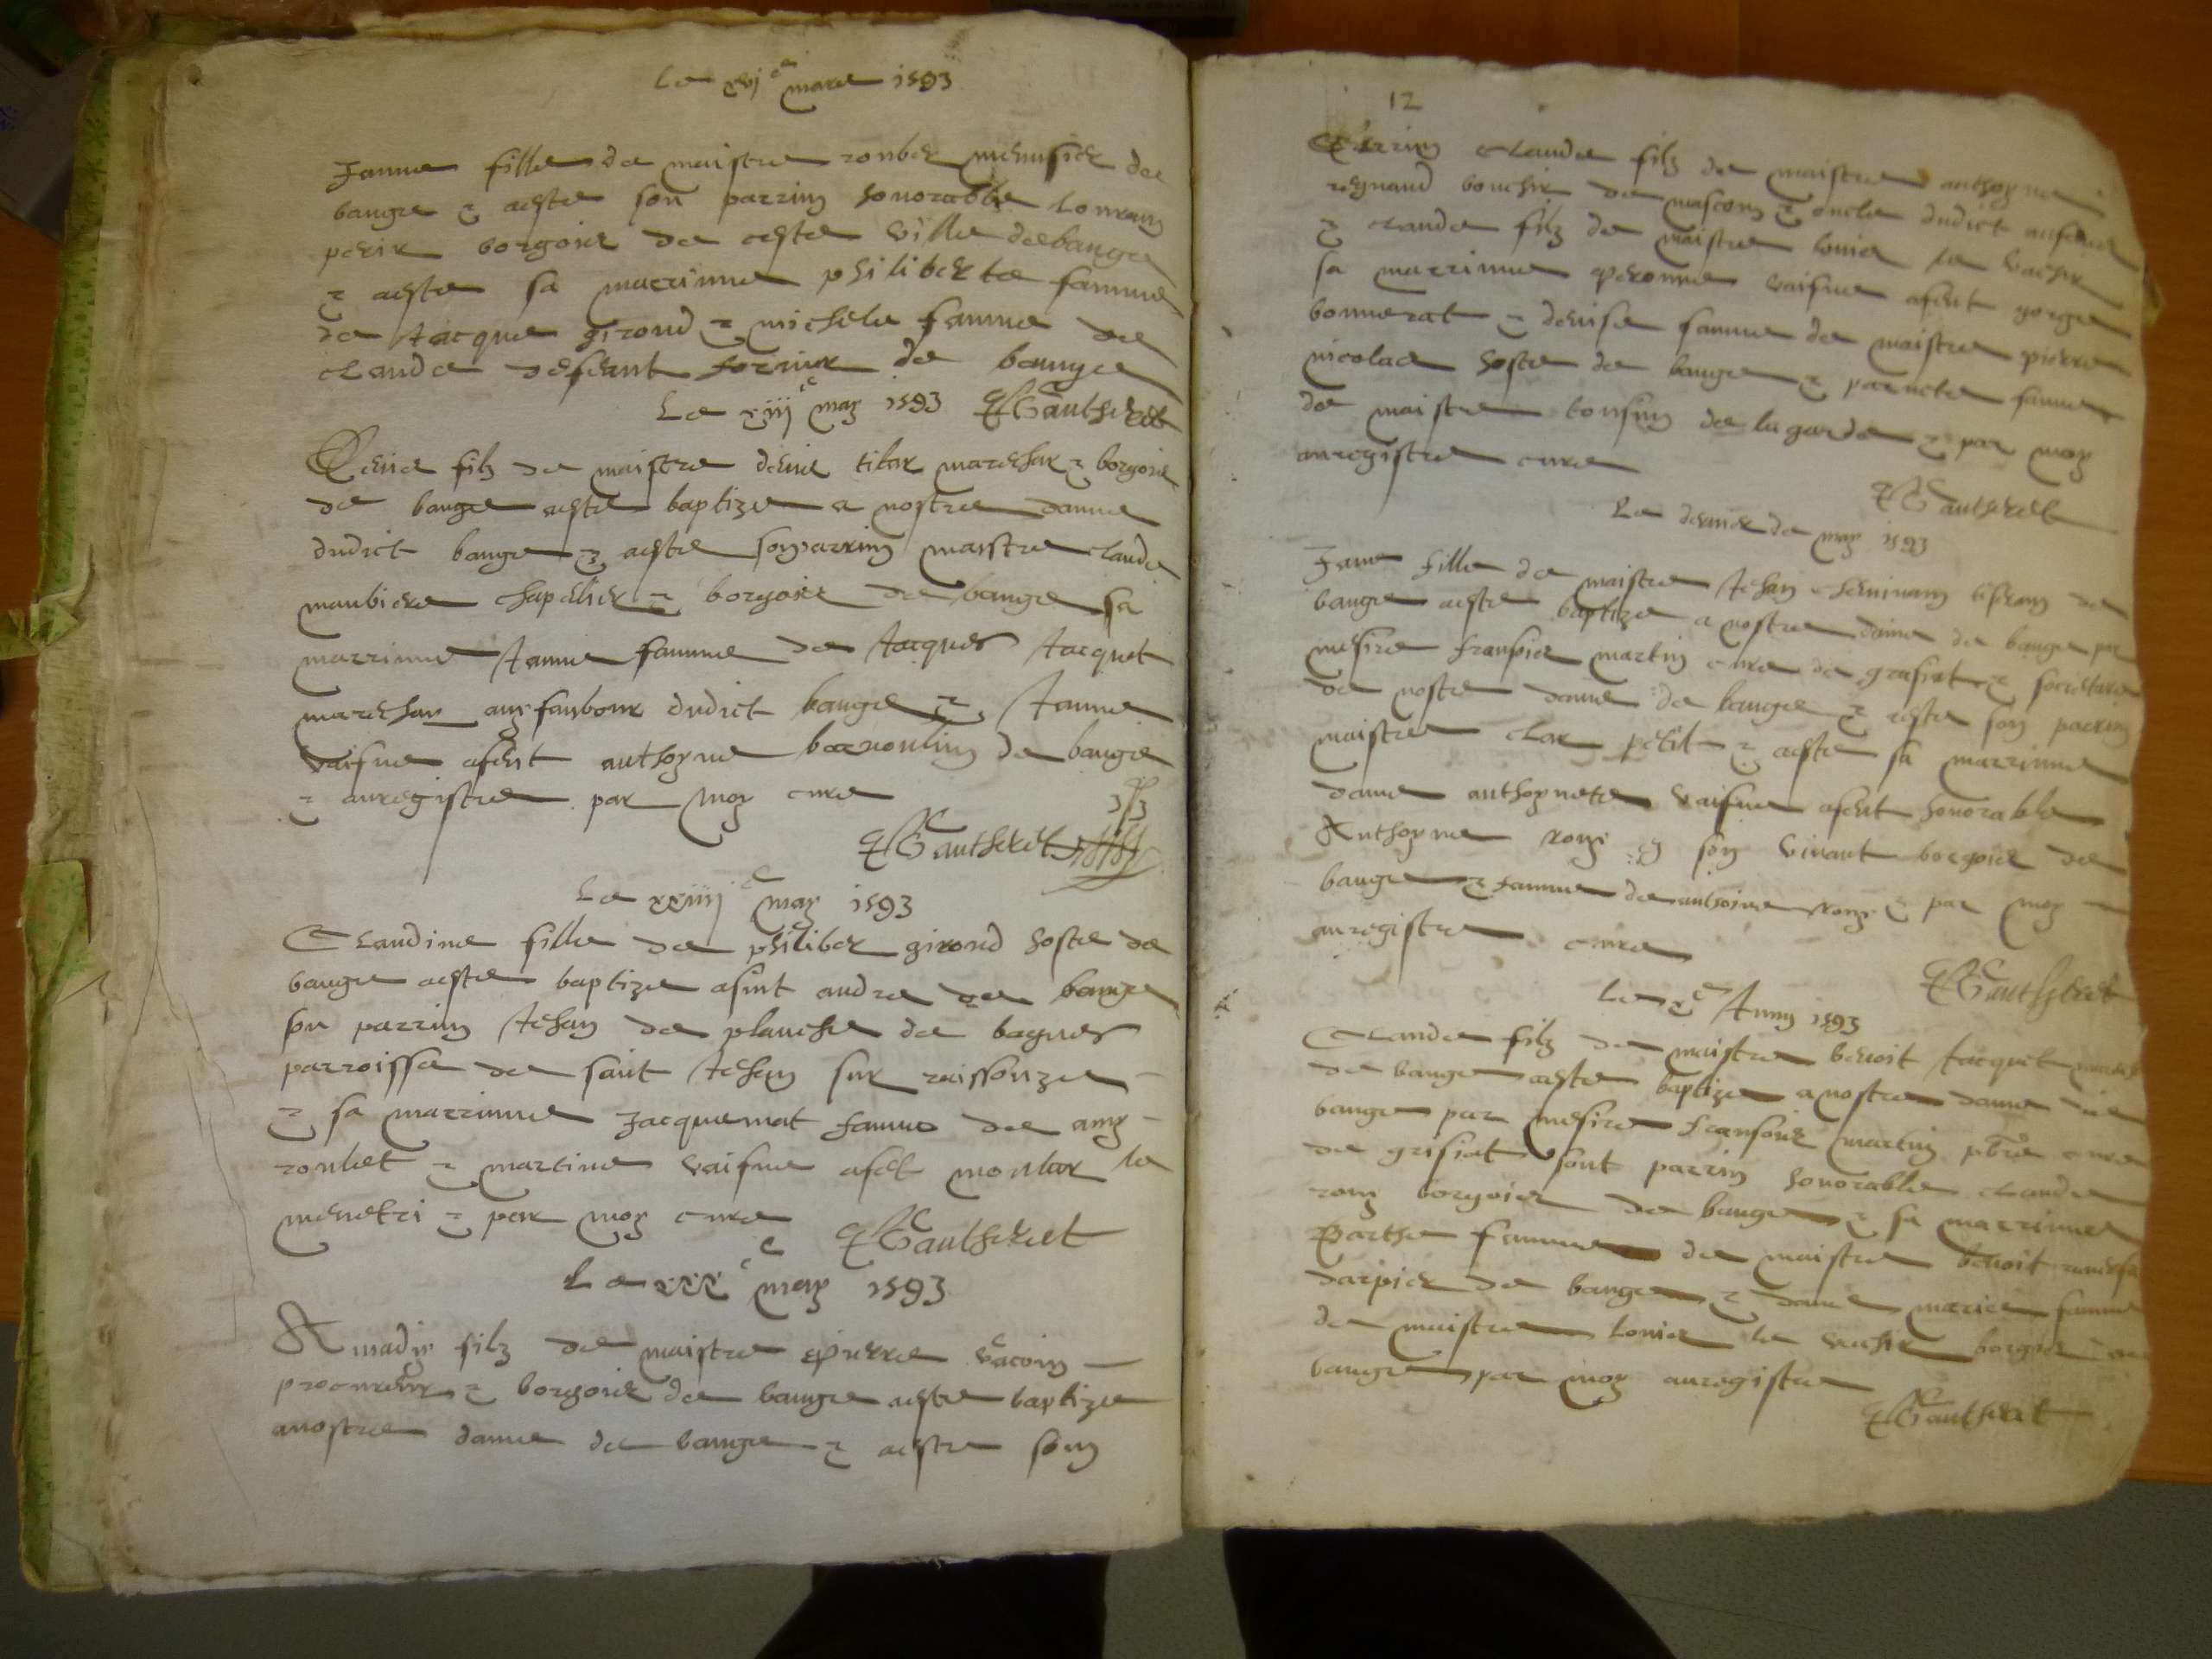 Le xvj e mare 1593
Janne fille de maistre rouber menusier de
bauge & aeste son parrin honorable Louran
perir borgois de ceste ville de bauge
& aeste sa marrinne philiberte famme
de Jacque girond & michele famme de
claude de bauge
Le xiiij e may 1593 Gautheret
Denis filz de maistre denis tilar mareschar & borgois
de bauge aeste baptize a nostre damme
dudict bauge & aeste son parrin maistre claude
maubiere chapelier & borgois de bauge sa
marrinne Janne famme de Jacques Jacquet
mareschau aux faubour dudict bauge & Janne
vaifue afeut anthoyne de bauge
& anregistre par moy cure
Gautheret
Le xxiiij e may 1593
Claudine fille de philiber girond hoste de
bauge aeste baptize asint andre de bauge
son parrin Jehan de planche de bagnes
parroisse de saint Jehan sur raissouze
& sa marrinne Jacquemat famme de amy
roulet & martine vaifue afet montar le
menetri & par moy cure Gautheret
Le xxx e may 1593
Amadis filz de maistre pierre vacoin
procureur & borgois de bauge aeste baptize
a nostre damme de bauge & aeste son
12
parrin claude filz de maistre anthoyne
regnaud bouchir de mascon & oncle dudict anfant
& claude filz de maistre louis le vachir
sa marrinne peronne vaifue afeut gorge
bonnerat & denise famme de maistre pierre
nicolas hoste de bauge & parnete famme
de maistre tonsin de lagarde & par moy
anregistre cure
Gautheret
Le dernier de may 1593
Jane fille de maistre Jehan tiseran de
bauge aeste baptize a nostre dame de bauge par
mesire fransois martin cure de grasiat & societere
de nostre damme de bauge & aeste son parrin
maistre clar petit & aeste sa marrinne
dame anthoynete vaifue afeut honorable
Anthoyne rong en son vivant borgois de
bauge & famme de antoine rong & par moy
anregistre cure
Gautheret
Le x e Juin 1593
Claude filz de maistre benoit Jacquet
de bauge aeste baptize a nostre dame de
bauge par mesire fransois martin pbre cure
de grisiat sont parrin honorable claude
rong borgois de bauge & sa marrinne
Barthe famme de maistre benoit
darpier de bauge & dame marie famme
de maistre louis le vachir borgois de
bauge par moy anregistre
Gautheret